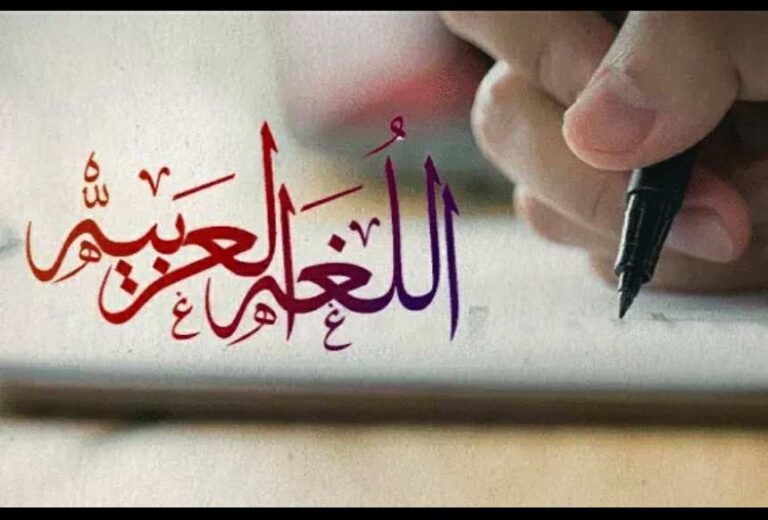 اللُّغَة العَرَبيّة